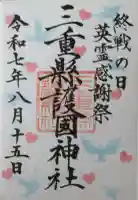 終戦の日
英霊感謝祭
三重縣護國神社
令和七年八月十五日